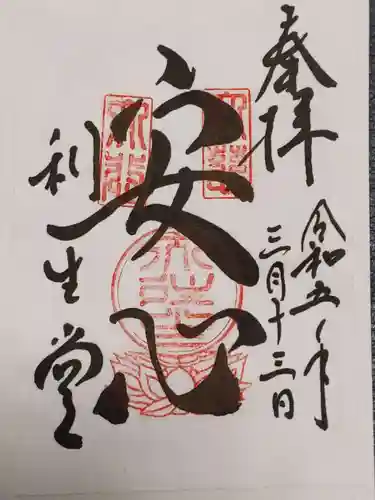 奉拝
令和五年
三月十三日
安心
利生堂